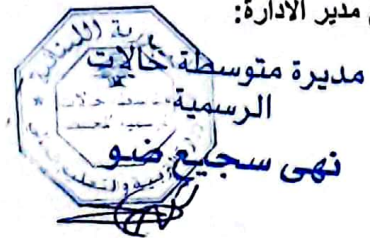 مدير الادارة:
مديرة متوسطة حالات
الرسمية
نهى سجيع ضو